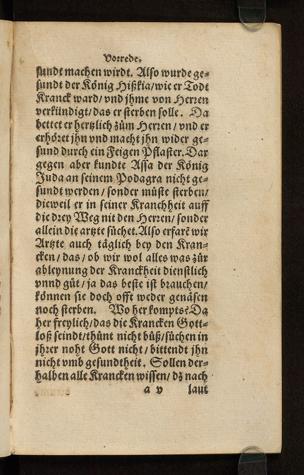 Vorrede.
sundt machen wirdt. Also wurde ge⸗
sundt der König Hißkia/wie er Todt
Kranck ward/vnd jhme von Herren
verkündigt/das er sterben solle. Da
bettet er hertzlich zům Herren/vnd er
erhöret jhn vnd macht jhn wider ge⸗
sund durch ein Feigen Pflaster. Dar
gegen aber kundte Assa der König
Juda an seinem Podagra nicht ge⸗
sundt werden/ sonder můste sterben/
dieweil er in seiner Kranchheit auff
die drey Weg nit den Herren/sonder
allein die artzte sůchet. Also erfarẽ wir
Artzte auch täglich bey den Kran⸗
cken/das/ob wir wol alles was zůr
ableynung der Kranckheit dienstlich
vnnd gůt/ja das beste ist brauchen/
können sie doch offt weder genäsen
noch sterben. Wo her kompts? Da
her freylich/das die Krancken Gott⸗
loß seindt/thůnt nicht bůß/sůchen in
jhrer noht Gott nicht/bittendt jhn
nicht vmb gesundtheit. Sollen der⸗
halben alle Krancken wissen/dz nach
a v laut